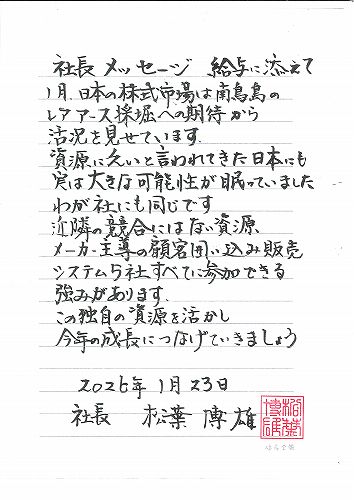 社長 メッセージ 給与に添えて
1月、日本の株式市場は南鳥島の
レアアース採掘への期待から
活況を見せています。
資源に乏しいと言われてきた日本にも
実は大きな可能性が眠っていました
わが社にも同じです
近隣の競合にはない資源、
メーカー主導の顧客囲い込み販売
システム5社すべてに参加できる
強みがあります。
この独自の資源を活かし
今年の成長につなげていきましょう
2026年 1月23日
社長 松葉 博雄
松葉博雄